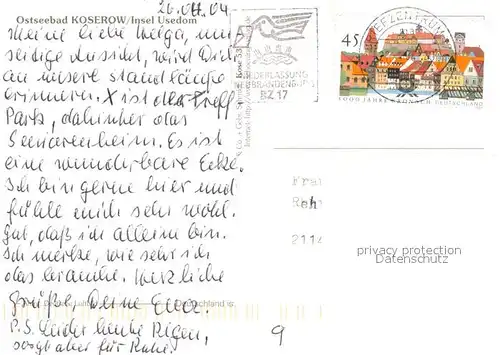 26.04.04
Ostseebad KOSEROW/Insel Usedom
Meine liebe Helga, und
seitige Aussicht, wird Dich
an unsere Standläufe
erinnern. X ist der Treff
Park, dahinter das
Seniorenheim. Es ist
eine wunderbare Ecke.
Ich bin gerne hier und
fühle mich sehr wohl.
Gut, daß ich allein bin.
Ich merke, wie sehr ich
das brauche. Herzliche
Grüße, Deine
P.S. Leider heute Regen,
sorgt aber für Ruhe.
Deutschland
BRIEFZENTRUM
NIEDERLASSUNG
NEUBRANDENBURG
BZ 17
45
1000 JAHRE KRONACH DEUTSCHLAND
privacy protection
Datenschutz
9